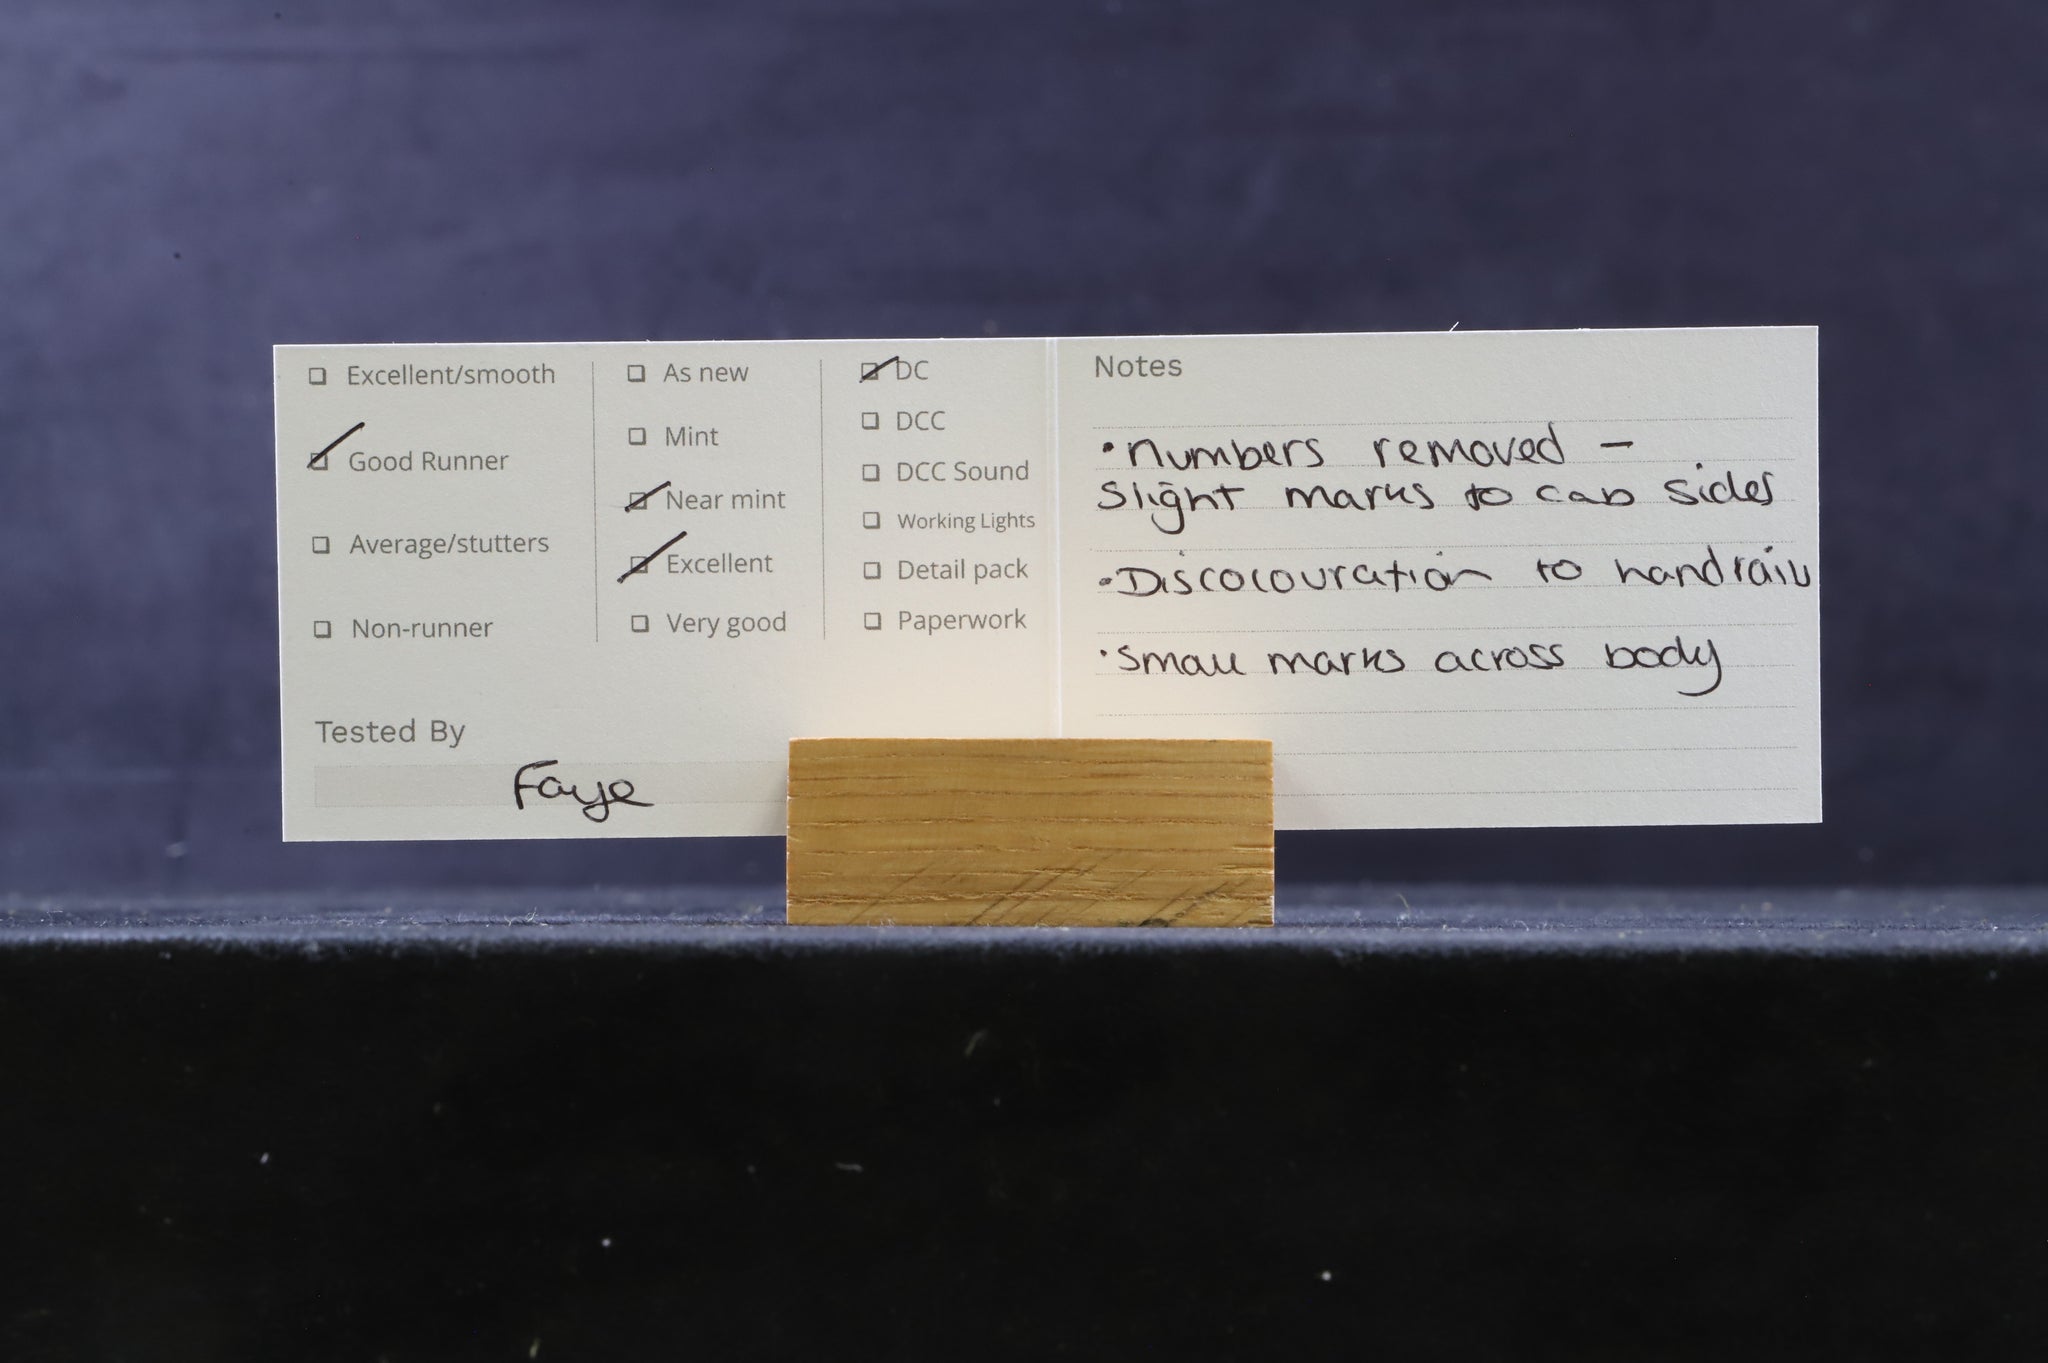 Excellent/smooth
Good Runner
Average/stutters
Non-runner
As new
Mint
Near mint
Excellent
Very good
DC
DCC
DCC Sound
Working Lights
Detail pack
Paperwork
Tested By
Faye
Notes
• Numbers removed –
Slight marks to cab sides
• Discolouration to handrail
• Small marks across body